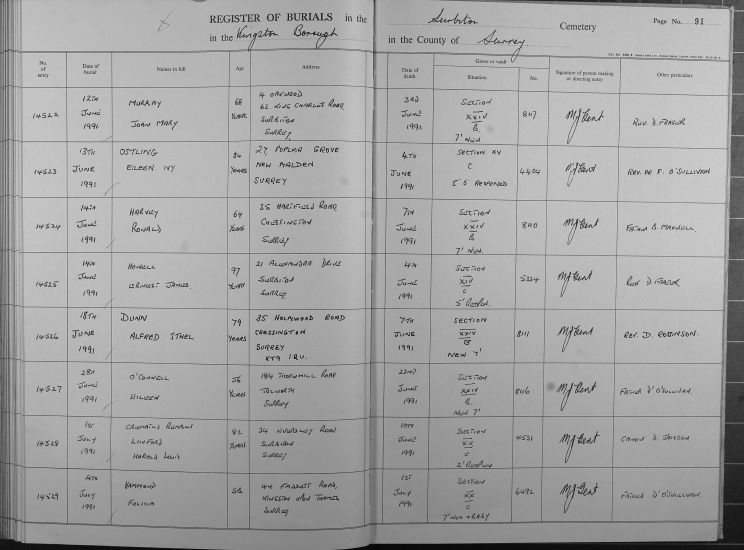 REGISTER OF BURIALS in the
in the Kingston Borough
Surbiton Cemetery
Page No. 91
in the County of Surrey.
No. of entry
Date of burial
Names in full
Age
Address
Date of death
Grave or vault
Situation
No.
Signature of person making or directing entry
Other particulars
14522
12TH JUNE 1991
MURRAY
JOAN MARY
68 YEARS
4 OAKWOOD
62 KING CHARLES ROAD
SURBITON
SURREY
3RD JUNE 1991
SECTION
XXIV
B
7' NEW
8117
MJ Gent
REV. D. FRASER
14523
13TH JUNE 1991
OSTLING
EILEEN IVY
84 YEARS
27 POPLAR GROVE
NEW MALDEN
SURREY
4TH JUNE 1991
SECTION XV
C
5'5 REOPENED
4404
MJ Gent
REV. DR F. O'SULLIVAN
14524
14TH JUNE 1991
HARVEY
RONALD
64 YEARS
35 HARTFIELD ROAD
CHESSINGTON
SURREY
7TH JUNE 1991
SECTION
XXIV
B
7' NEW.
8110
MJ Gent
FATHER B. MAXWELL.
14525
14TH JUNE 1991
HOWELL
ERNEST JAMES.
97 YEARS
21 ALEXANDRA DRIVE
SURBITON
SURREY
4TH JUNE 1991
SECTION
XIV
C
5' REOPEN.
5324
MJ Gent
REV. D. FRASER
14526
18TH JUNE 1991
DUNN
ALFRED ITHEL
79 YEARS
35 HOLMWOOD ROAD
CHESSINGTON
SURREY
KT9 1QU.
7TH JUNE 1991
SECTION
XXIV
B
NEW 7'
8111
MJ Gent
REV. D. ROBINSON.
14527
28TH JUNE 1991
O'CONNELL
EILEEN
56 YEARS
184 THORNHILL ROAD
TOLWORTH
SURREY
22ND JUNE 1991
SECTION
XXIV
B.
NEW 7'
8116
MJ Gent
FATHER D'O'SULLIVAN.
14528
1ST JULY 1991
CREMATED REMAINS
LINFORD
HAROLD LOUIS
82 YEARS
34 EVERSLEY ROAD
SURBITON
SURREY
JUNE 1991
SECTION
XV
C
2' REOPEN
4531
MJ Gent
CANON D. JACKSON
14529
4TH JULY 1991
HAMMOND
FELICIA
44 FASSETT ROAD,
KINGSTON UPON THAMES
SURREY
1ST JULY 1991
SECTION
XX
C
6492
MJ Gent
FATHER D'O'SULLIVAN